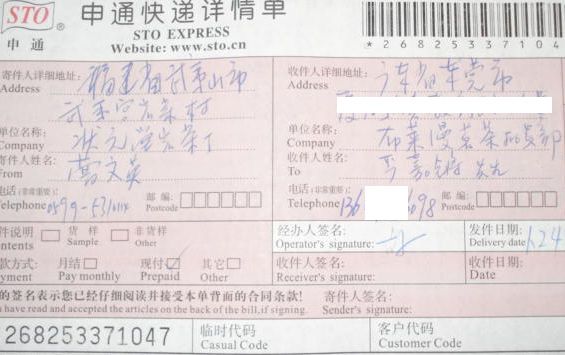 STO 申通快递详情单
申通 STO EXPRESS
Website: www.sto.cn
*268253371047
寄件人详细地址: 福建省武夷山市
Address
武夷宫岩茶村
单位名称: 状元岩茶厂
Company
寄件人姓名:
From
电话(非常重要): 邮编:
Telephone 0599-531 Postcode
收件人详细地址: 广东省东莞市
Address
单位名称:
Company
收件人姓名:
To
电话(非常重要): 邮编:
Telephone 136 098 Postcode
件说明 货样 非货样
ntents Sample Other
款方式: 月结 现付 其它
yment Pay monthly Prepaid Other
经办人签名: 发件日期:
Operator's signature: Delivery date 1.24
收件人签名: 收件日期:
Receiver's signature: Date
的签名表示您已经仔细阅读并接受本单背面的合同条款! 寄件人签名:
have read and accepted the articles on the back of the bill, if signing. Sender's signature:
268253371047 临时代码 客户代码
Casual Code Customer Code